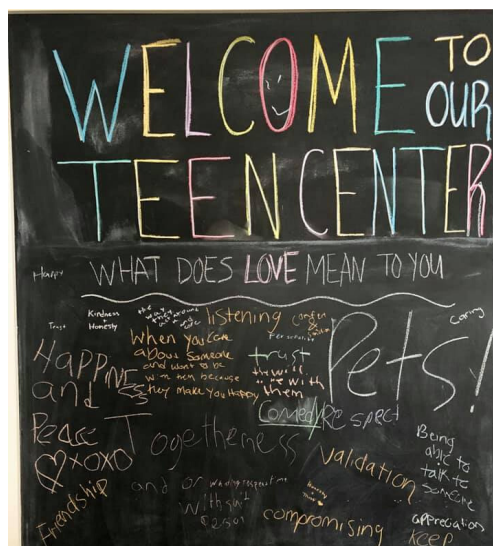 WELCOME TO OUR
TEEN CENTER
WHAT DOES LOVE MEAN TO YOU
Happy
Trust
Kindness
+
Honesty
listening
Caring
When you care
about someone
and want to be
with them because
they make you happy
trust
them
Pets!
Happiness
and
Peace
XOXO
Comedy
Respect
Togetherness
Being
able to
talk to
someone
validation
Friendship
and or
compromising
appreciation
keep